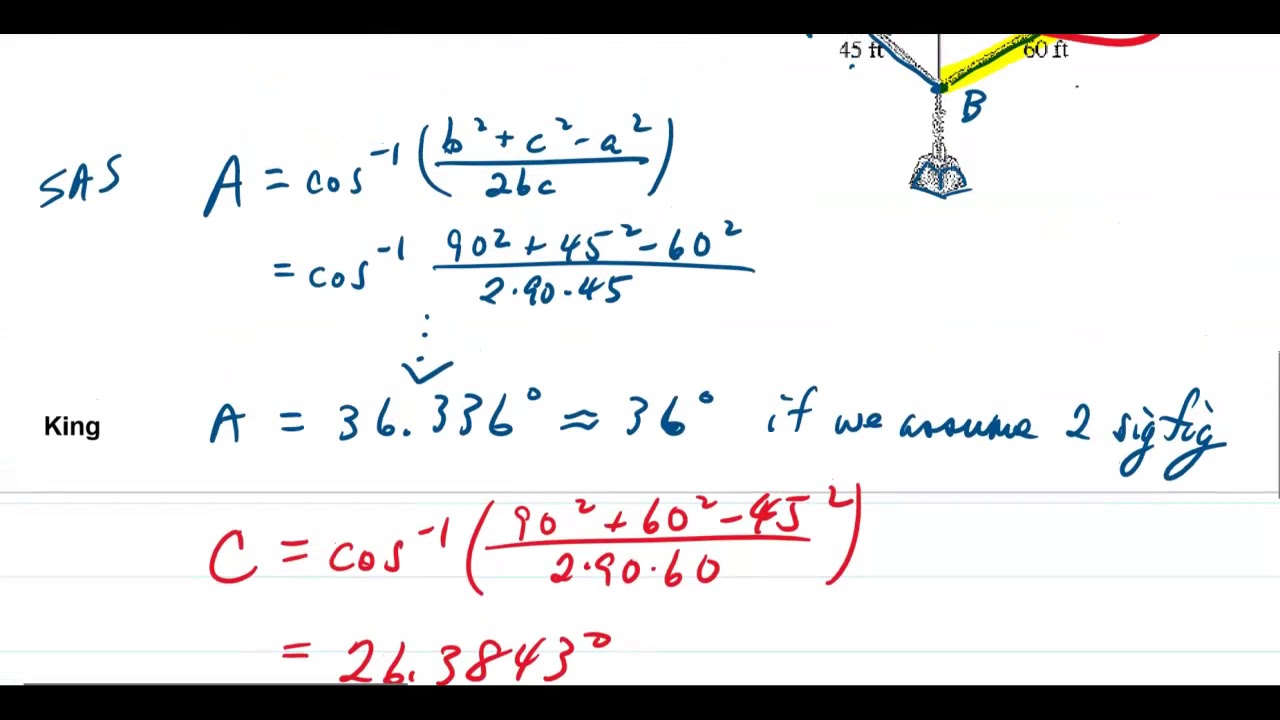 45 ft 60 ft
B
SAS A = cos⁻¹ ( b² + c² - a² / 2bc )
= cos⁻¹ 90² + 45² - 60² / 2·90·45
King A = 36.336° ≈ 36° if we assume 2 sigfig
C = cos⁻¹ ( 90² + 60² - 45² / 2·90·60 )
= 26.3843°